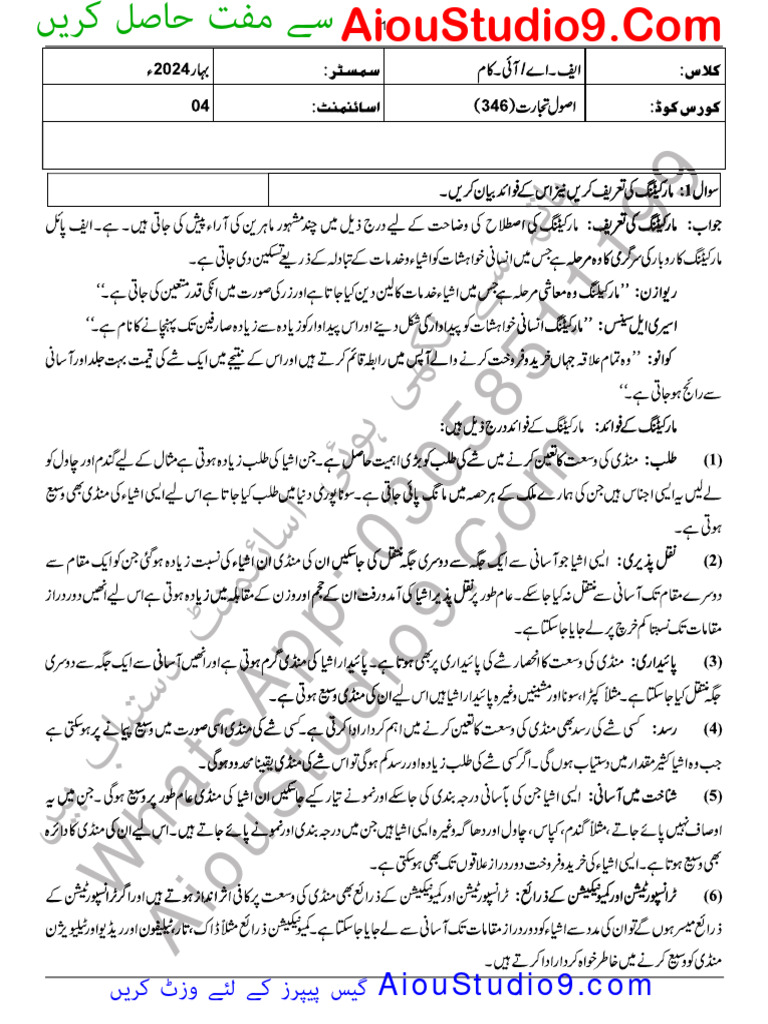 AiouStudio9.Com سے مفت حاصل کریں
1
کلاس: ایف۔اے/آئی۔کام سمسٹر: بہار 2024ء
کورس کوڈ: اصول تجارت (346) اسائنمنٹ: 04
سوال 1: مارکیٹنگ کی تعریف کریں نیز اس کے فوائد بیان کریں۔
جواب: مارکیٹنگ کی تعریف: مارکیٹنگ کی اصطلاح کی وضاحت کے لیے درج ذیل میں چند مشہور ماہرین کی آراء پیش کی جاتی ہیں۔ ہے۔ ایف پائل
مارکیٹنگ کاروبار کی سرگرمی کا وہ مرحلہ ہے جس میں انسانی خواہشات کو اشیاء و خدمات کے تبادلہ کے ذریعے تسکین دی جاتی ہے۔
ریوازن: ’’مارکیٹنگ وہ معاشی مرحلہ ہے جس میں اشیاء خدمات کا لین دین کیا جاتا ہے اور زر کی صورت میں انکی قدر متعین کی جاتی ہے۔‘‘
اسیری ایل سینس: ’’مارکیٹنگ انسانی خواہشات کو پیداوار کی شکل دینے اور اس پیداوار کو زیادہ سے زیادہ صارفین تک پہنچانے کا نام ہے۔‘‘
کوانو: ’’وہ تمام علاقہ جہاں خرید و فروخت کرنے والے آپس میں رابطہ قائم کرتے ہیں اور اس کے نتیجے میں ایک شے کی قیمت بہت جلد اور آسانی
سے رائج ہو جاتی ہے۔‘‘
مارکیٹنگ کے فوائد: مارکیٹنگ کے فوائد درج ذیل ہیں:
(1) طلب: منڈی کی وسعت کا تعین کرنے میں شے کی طلب کو بڑی اہمیت حاصل ہے۔ جن اشیا کی طلب زیادہ ہوتی ہے مثال کے لیے گندم اور چاول کو
لے لیں یہ ایسی اجناس ہیں جن کی ہمارے ملک کے ہر حصہ میں مانگ پائی جاتی ہے۔ سونا پوری دنیا میں طلب کیا جاتا ہے اس لیے ایسی اشیاء کی منڈی بھی وسیع
ہوتی ہے۔
(2) نقل پذیری: ایسی اشیا جو آسانی سے ایک جگہ سے دوسری جگہ منتقل کی جاسکیں ان کی منڈی ان اشیاء کی نسبت زیادہ ہوگئی جن کو ایک مقام سے
دوسرے مقام تک آسانی سے منتقل نہ کیا جاسکے۔ عام طور پر نقل پذیر اشیا کی آمدورفت ان کے حجم اور وزن کے مقابلہ میں زیادہ ہوتی ہے اس لیے انھیں دور دراز
مقامات تک نسبتاً کم خرچ پر لے جایا جاسکتا ہے۔
(3) پائیداری: منڈی کی وسعت کا انحصار شے کی پائیداری پر بھی ہوتا ہے۔ پائیدار اشیا کی منڈی گرم ہوتی ہے اور انھیں آسانی سے ایک جگہ سے دوسری
جگہ منتقل کیا جاسکتا ہے۔ مثلاً کپڑا، سونا اور مشینیں وغیرہ پائیدار اشیا ہیں اس لیے ان کی منڈی وسیع ہوتی ہے۔
(4) رسد: کسی شے کی رسد بھی منڈی کی وسعت کا تعین کرنے میں اہم کردار ادا کرتی ہے۔ کسی شے کی منڈی اسی صورت میں وسیع پیمانے پر ہوسکتی ہے
جب وہ اشیا کثیر مقدار میں دستیاب ہوں گی۔ اگر کسی شے کی طلب زیادہ اور رسد کم ہوگی تو اس شے کی منڈی یقیناً محدود ہوگی۔
(5) شناخت میں آسانی: ایسی اشیا جن کی بآسانی درجہ بندی کی جاسکے اور نمونے تیار کیے جاسکیں ان اشیا کی منڈی عام طور پر وسیع ہوگی۔ جن میں یہ
اوصاف نہیں پائے جاتے، مثلاً گندم، کپاس، چاول اور دھاگہ وغیرہ ایسی اشیا ہیں جن میں درجہ بندی اور نمونے پائے جاتے ہیں۔ اس لیے ان کی منڈی کا دائرہ
بھی وسیع ہوتا ہے۔ ایسی اشیاء کی خرید و فروخت دور دراز علاقوں تک بھی ہوسکتی ہے۔
(6) ٹرانسپورٹیشن اور کمیونیکیشن کے ذرائع: ٹرانسپورٹیشن اور کمیونیکیشن کے ذرائع بھی منڈی کی وسعت پر کافی اثر انداز ہوتے ہیں اور اگر ٹرانسپورٹیشن کے
ذرائع میسر ہوں گے تو ان کی مدد سے اشیاء کو دور دراز مقامات تک آسانی سے لے جایا جاسکتا ہے۔ کمیونیکیشن ذرائع مثلاً ڈاک، تار، ٹیلیفون اور ریڈیو اور ٹیلیویژن
منڈی کو وسیع کرنے میں خاطر خواہ کردار ادا کرتے ہیں۔
ہاتھ سے لکھی ہوئی اسائنمنٹ دستیاب ہیں
WhatsApp: 03058511199
AiouStudio9.Com
AiouStudio9.com گیس پیپرز کے لئے وزٹ کریں